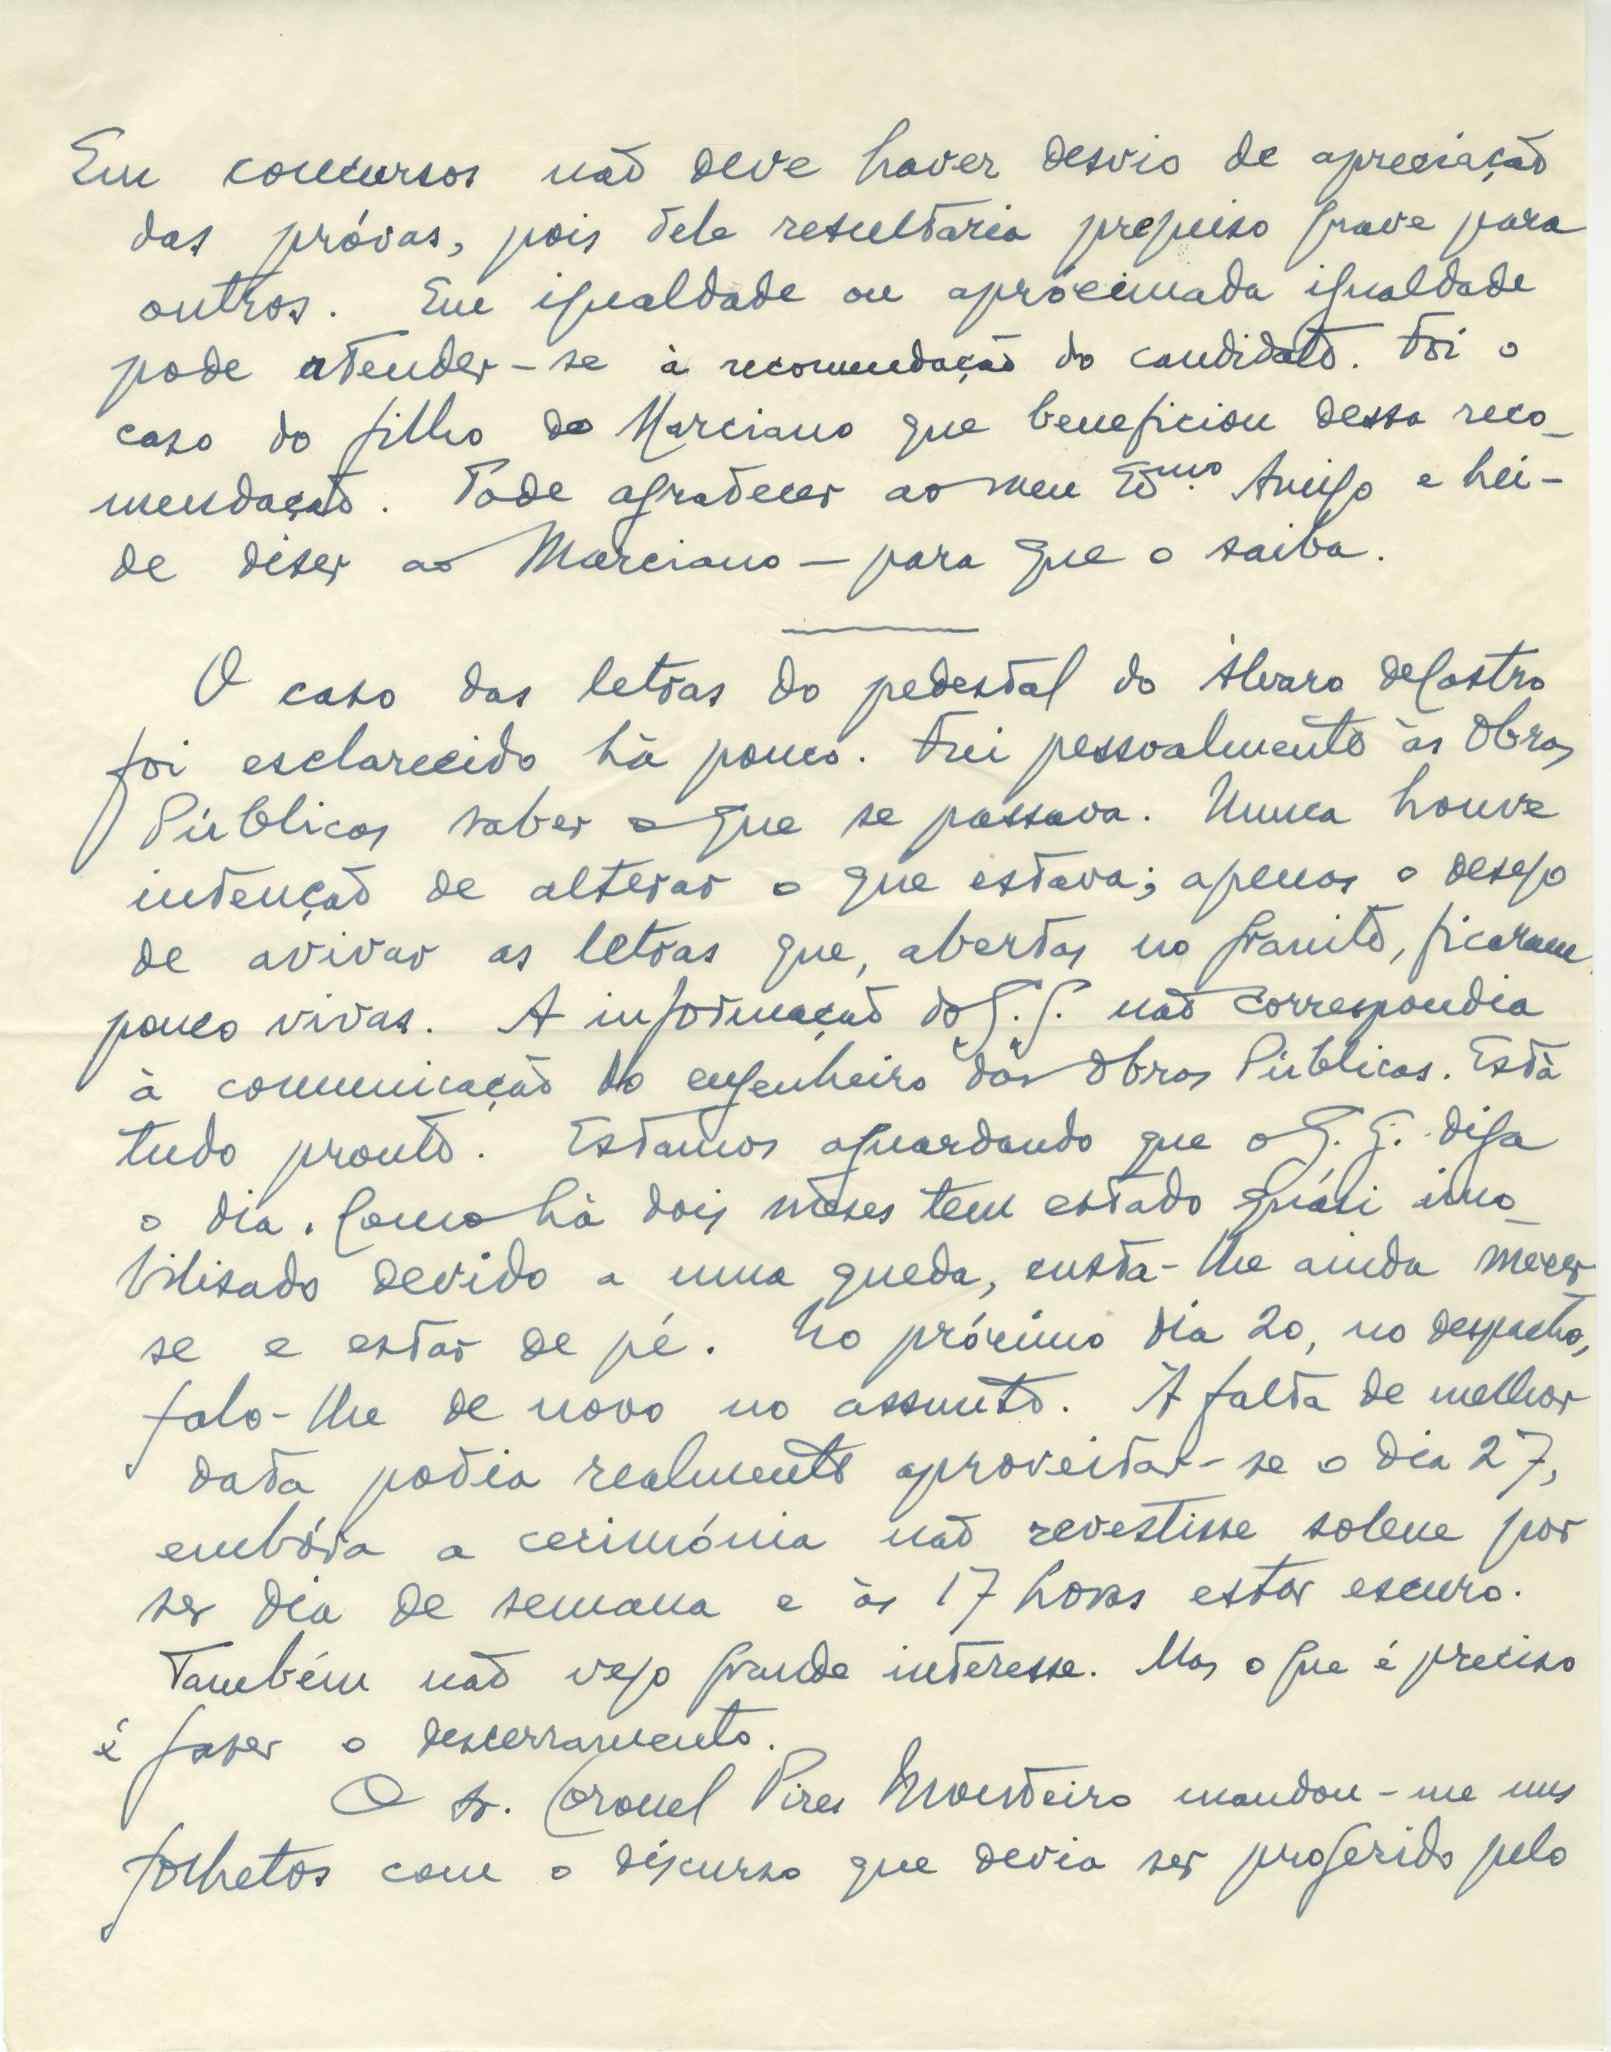 Em concursos não deve haver desvio de apreciação
das próvas, pois dele resultaria prejuiso grave para
outros. Em igualdade ou aprócimada igualdade
pode atender-se à recomendação do candidato. Foi o
caso do filho do Marciano que beneficiou dessa reco-
mendação. Pode agradecer ao meu Ex.mo Amigo e hei-
de diser ao Marciano — para que o saiba.
O caso das letras do pedestal do Álvaro de Castro
foi esclarecido há pouco. Fui pessoalmente às Obras
Públicas saber o que se passava. Nunca houve
intenção de alterar o que estava; apenas o desejo
de avivar as letras que, abertas no granito, ficaram
pouco vivas. A informação do G. G. não correspondia
à comunicação do engenheiro das Obras Públicas. Está
tudo pronto. Estamos aguardando que o G. G. diga
o dia. Como há dois meses tem estado quási imo-
bilisado devido a uma queda, custa-lhe ainda mecer
se e estar de pé. No prócimo dia 20, no despacho,
falo-lhe de novo no assunto. À falta de melhor
data podia realmente aproveitar-se o dia 27,
embóra a cerimónia não revestisse solene por
ser dia de semana e às 17 horas estar escuro.
Também não vejo grande interesse. Mas o que é preciso
é faser o descerramento.
O Sr. Coronel Pires Monteiro mandou-me uns
folhetos com o discurso que devia ser proferido pelo